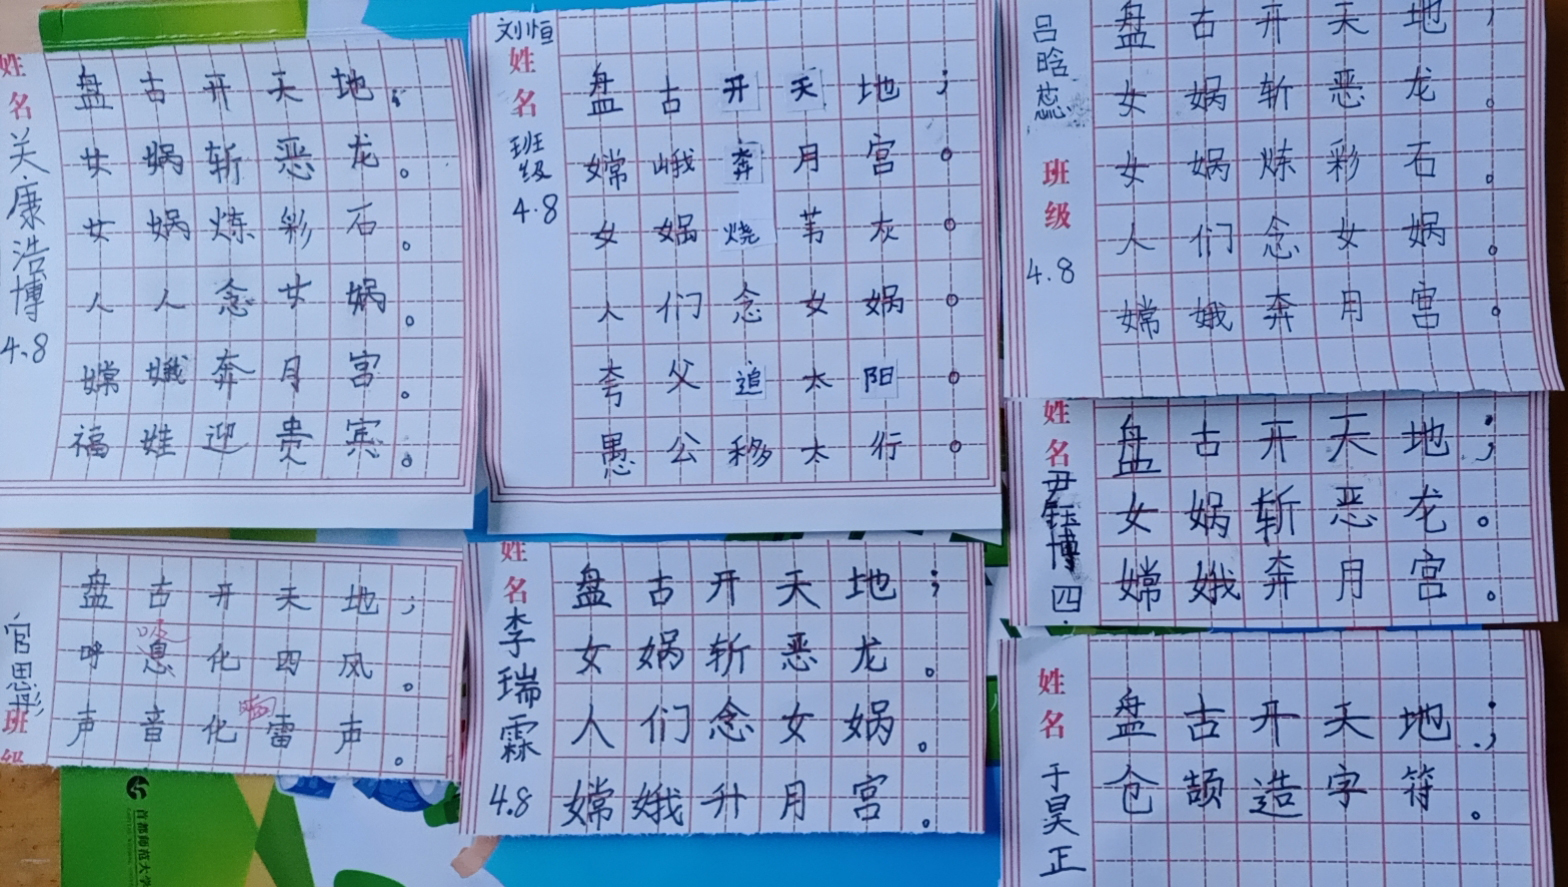 姓名 关康浩博 4.8
盘古开天地；
女娲斩恶龙。
女娲炼彩石。
人人念女娲。
嫦娥奔月宫。
福娃迎贵宾。
刘恒
姓名
班级
4.8
盘古开天地；
嫦峨奔月宫。
女娲烧苇灰。
人们念女娲。
夸父追太阳。
愚公移太行。
吕晗蕊
班级
4.8
盘古开天地；
女娲斩恶龙。
女娲炼彩石。
人们念女娲。
嫦娥奔月宫。
姓名 尹钰博 四.
盘古开天地；
女娲斩恶龙。
嫦娥奔月宫。
官思彤
班级
盘古开天地；
呼息化四风。
吸
声音化雷声。
雷
姓名 李瑞霖 4.8
盘古开天地；
女娲斩恶龙。
人们念女娲。
嫦娥升月宫。
姓名 于昊正
盘古开天地；
仓颉造字符。
首都师范大学